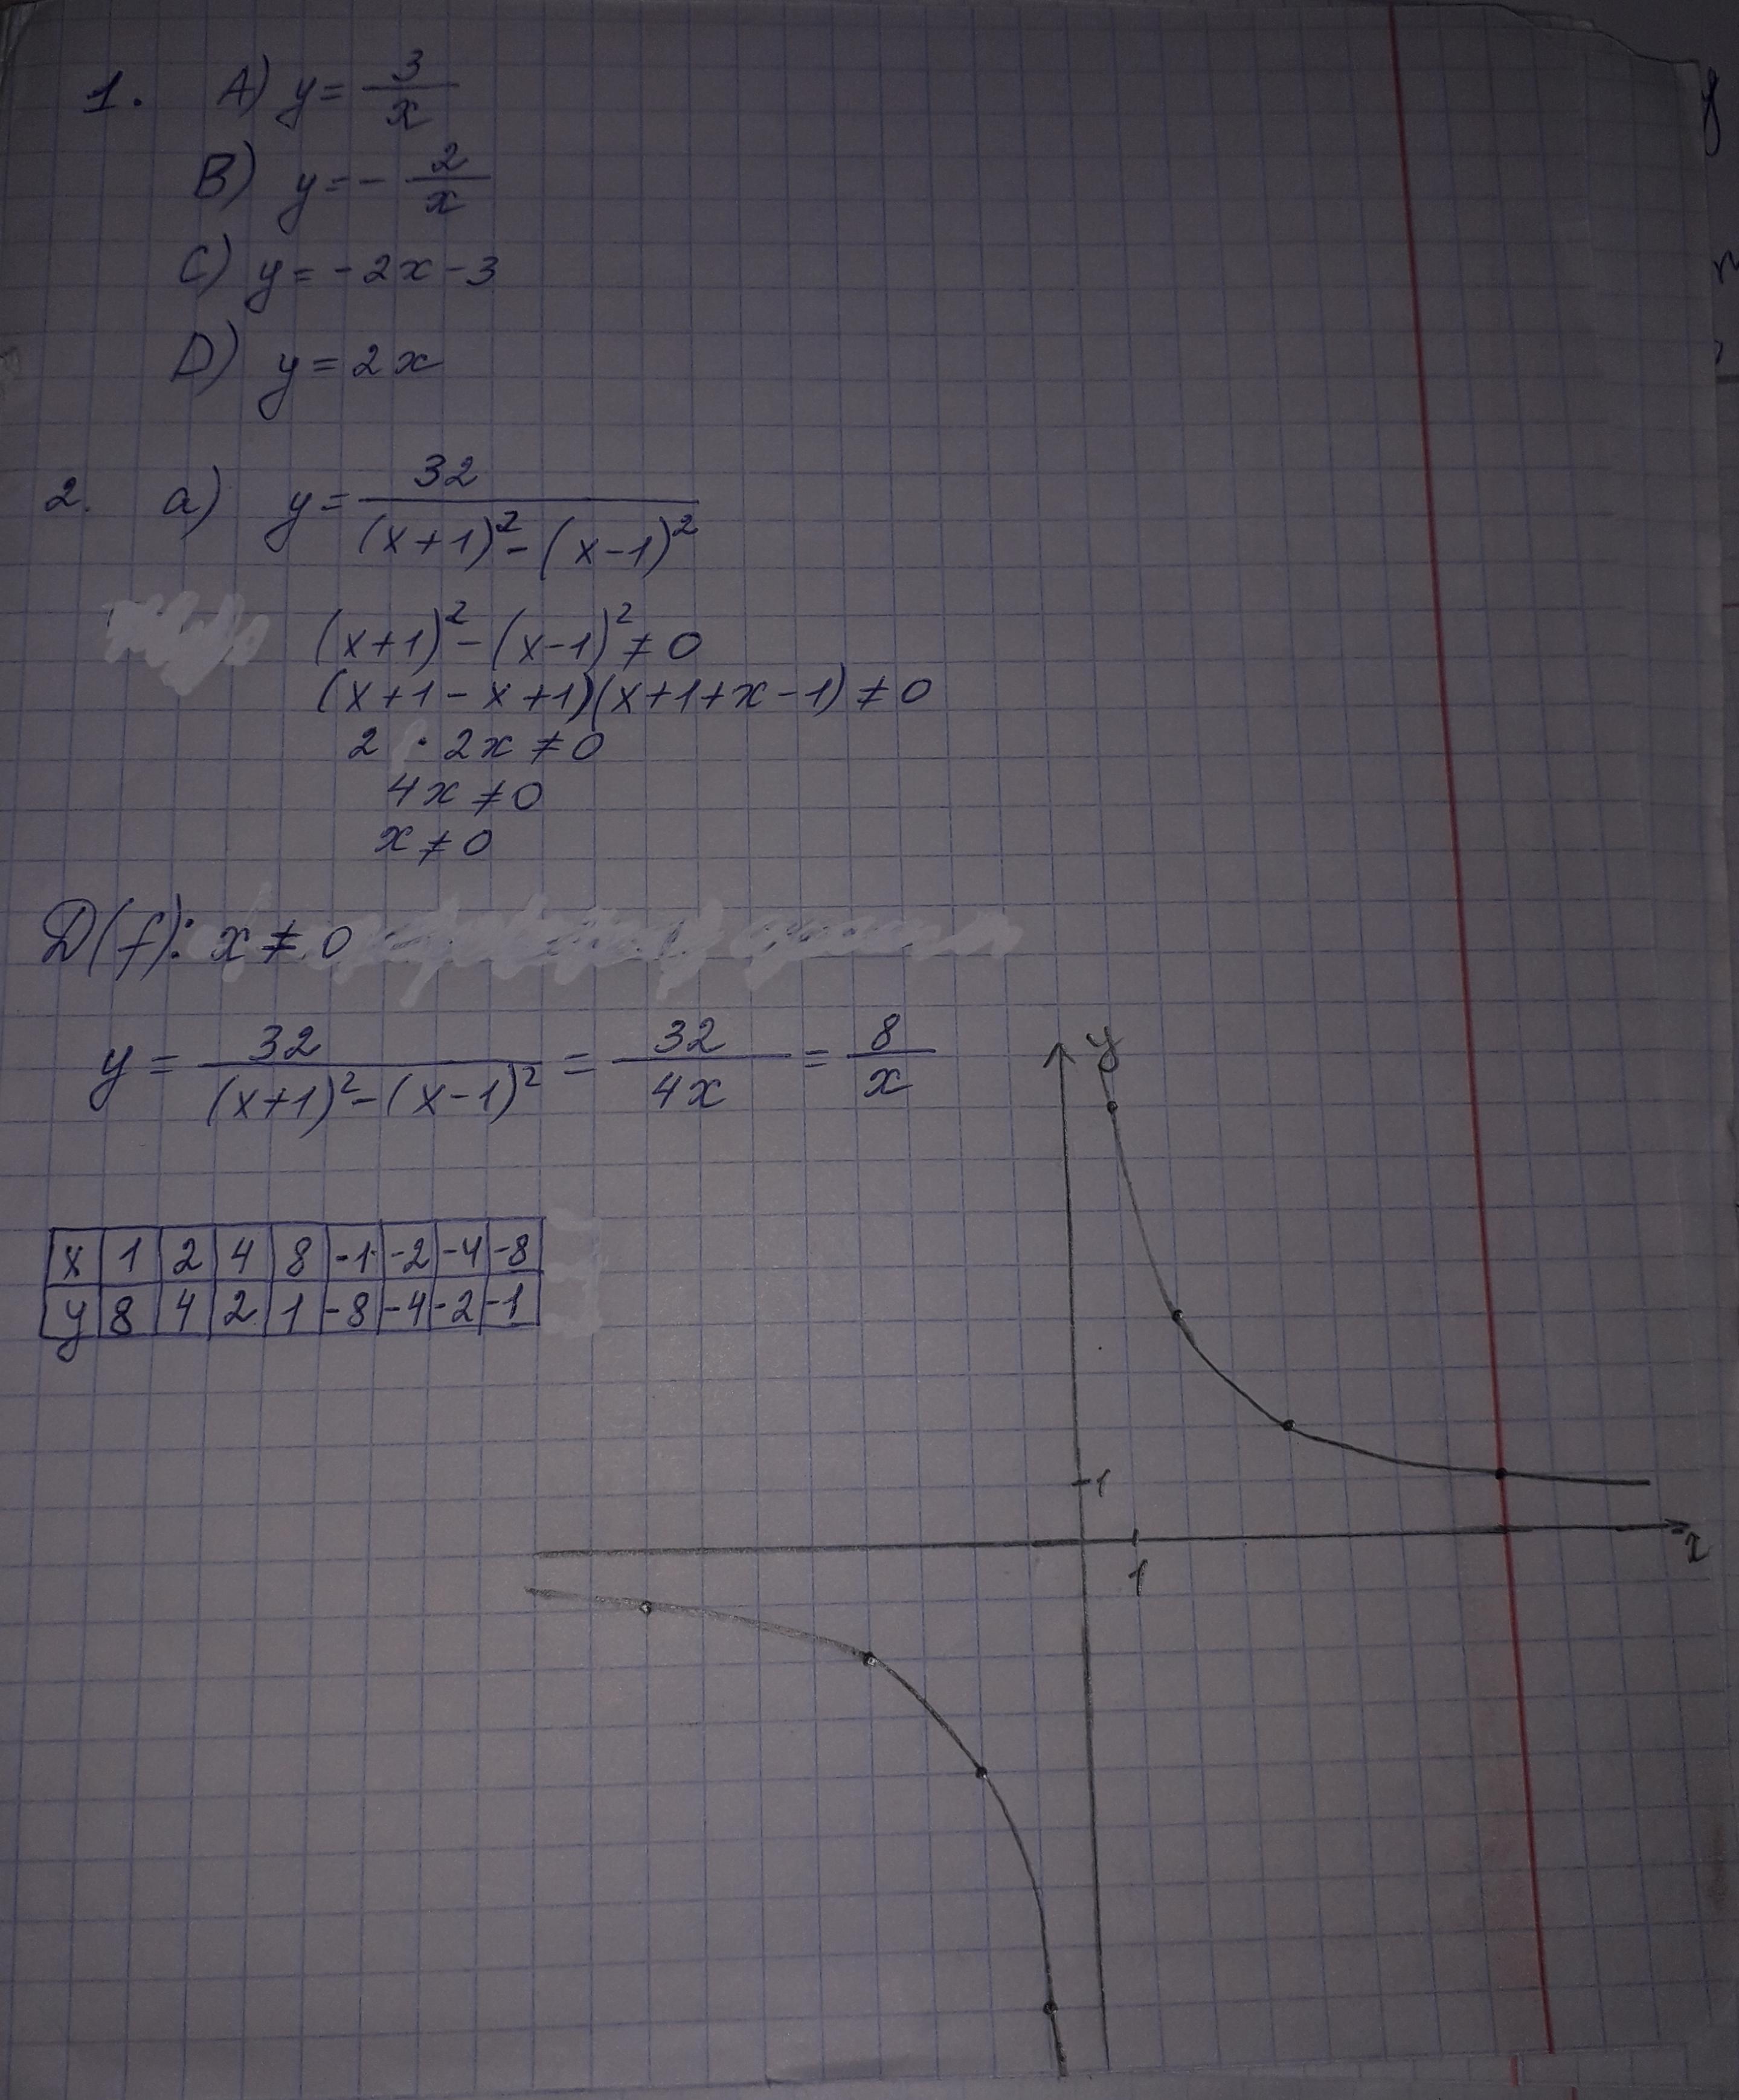 1. A) y = 3/x
B) y = - 2/x
C) y = -2x - 3
D) y = 2x
2. a) y = 32/((x+1)² - (x-1)²)
(x+1)² - (x-1)² ≠ 0
(x+1-x+1)(x+1+x-1) ≠ 0
2 · 2x ≠ 0
4x ≠ 0
x ≠ 0
D(f): x ≠ 0
y = 32/((x+1)² - (x-1)²) = 32/4x = 8/x
x 1 2 4 8 -1 -2 -4 -8
y 8 4 2 1 -8 -4 -2 -1
y
1
x
1